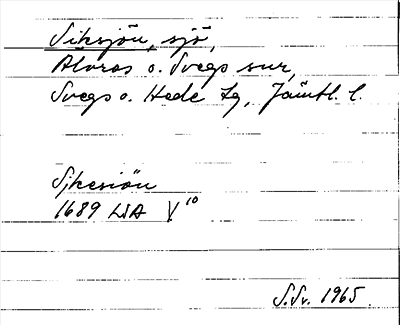 Siksjön, sjö,
Älvros o. Svegs snr,
Svegs o. Hede tg, Jämtl. l.
Sjkesiön
1689 LSA V¹⁰
S.Sv. 1965.